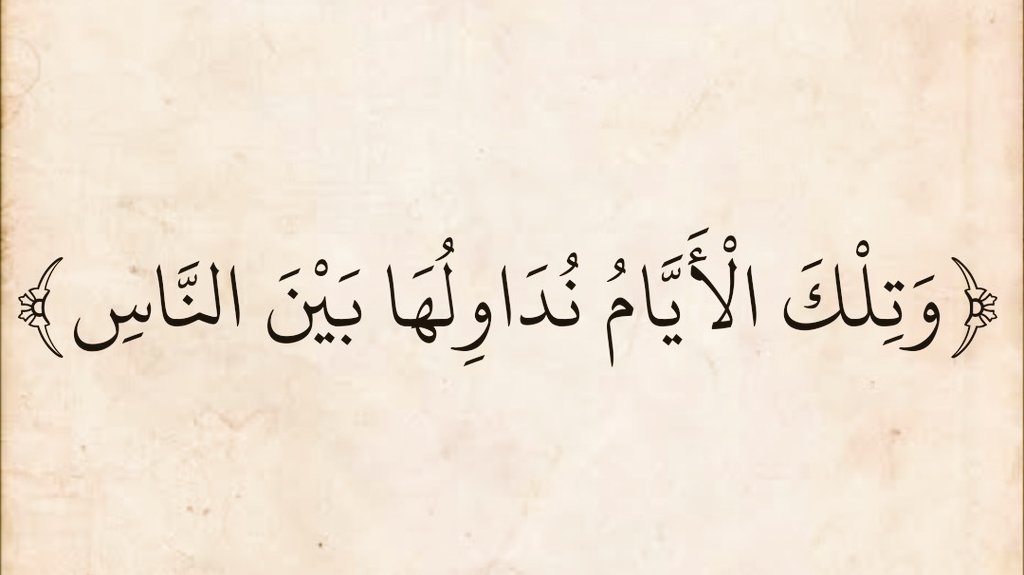 ﴿ وَتِلْكَ الْأَيَّامُ نُدَاوِلُهَا بَيْنَ النَّاسِ ﴾